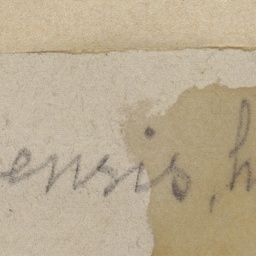 ensis, h